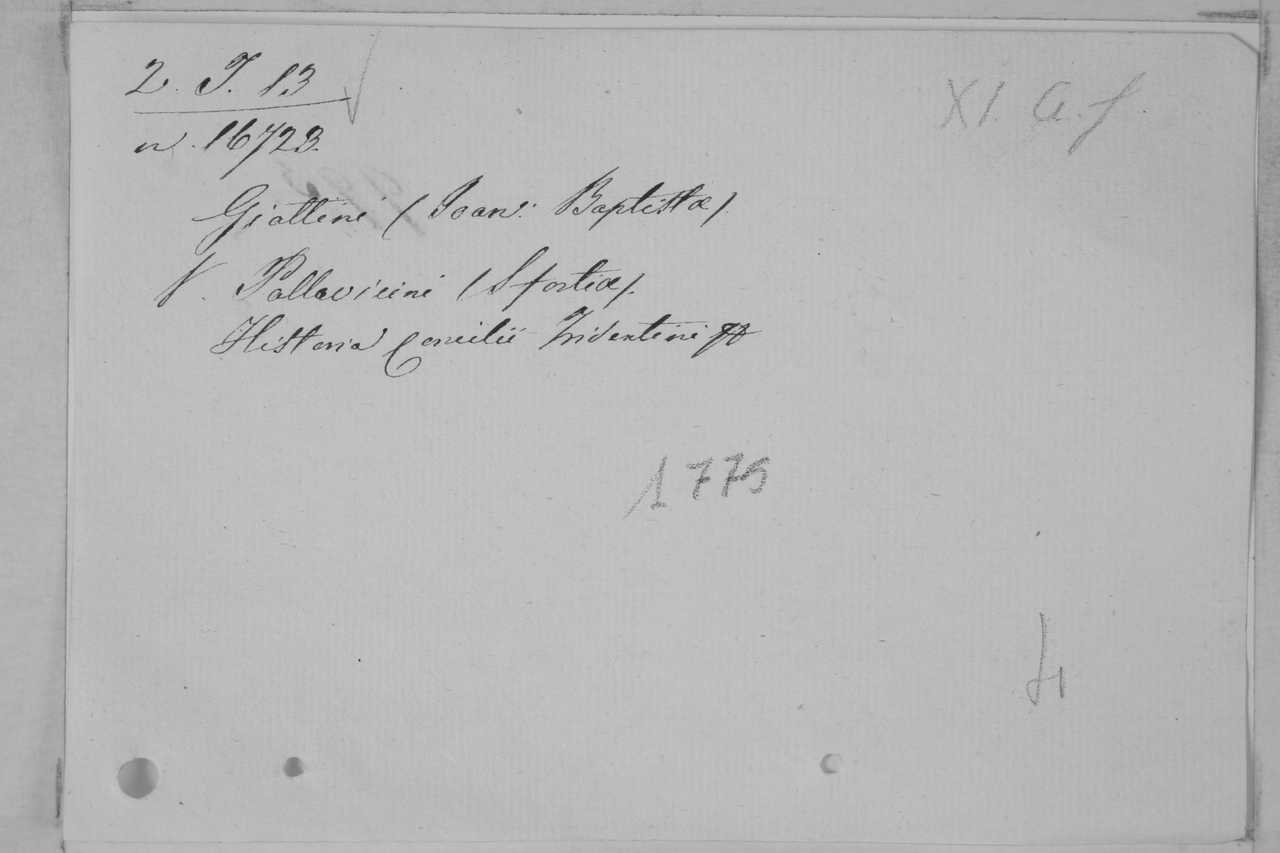 2. J. 13
XI. a. f.
n. 16723.
Giattini (Joan: Baptista).
V. Pallavicini (Sfortia).
Historia Concilii Tridentini
1775